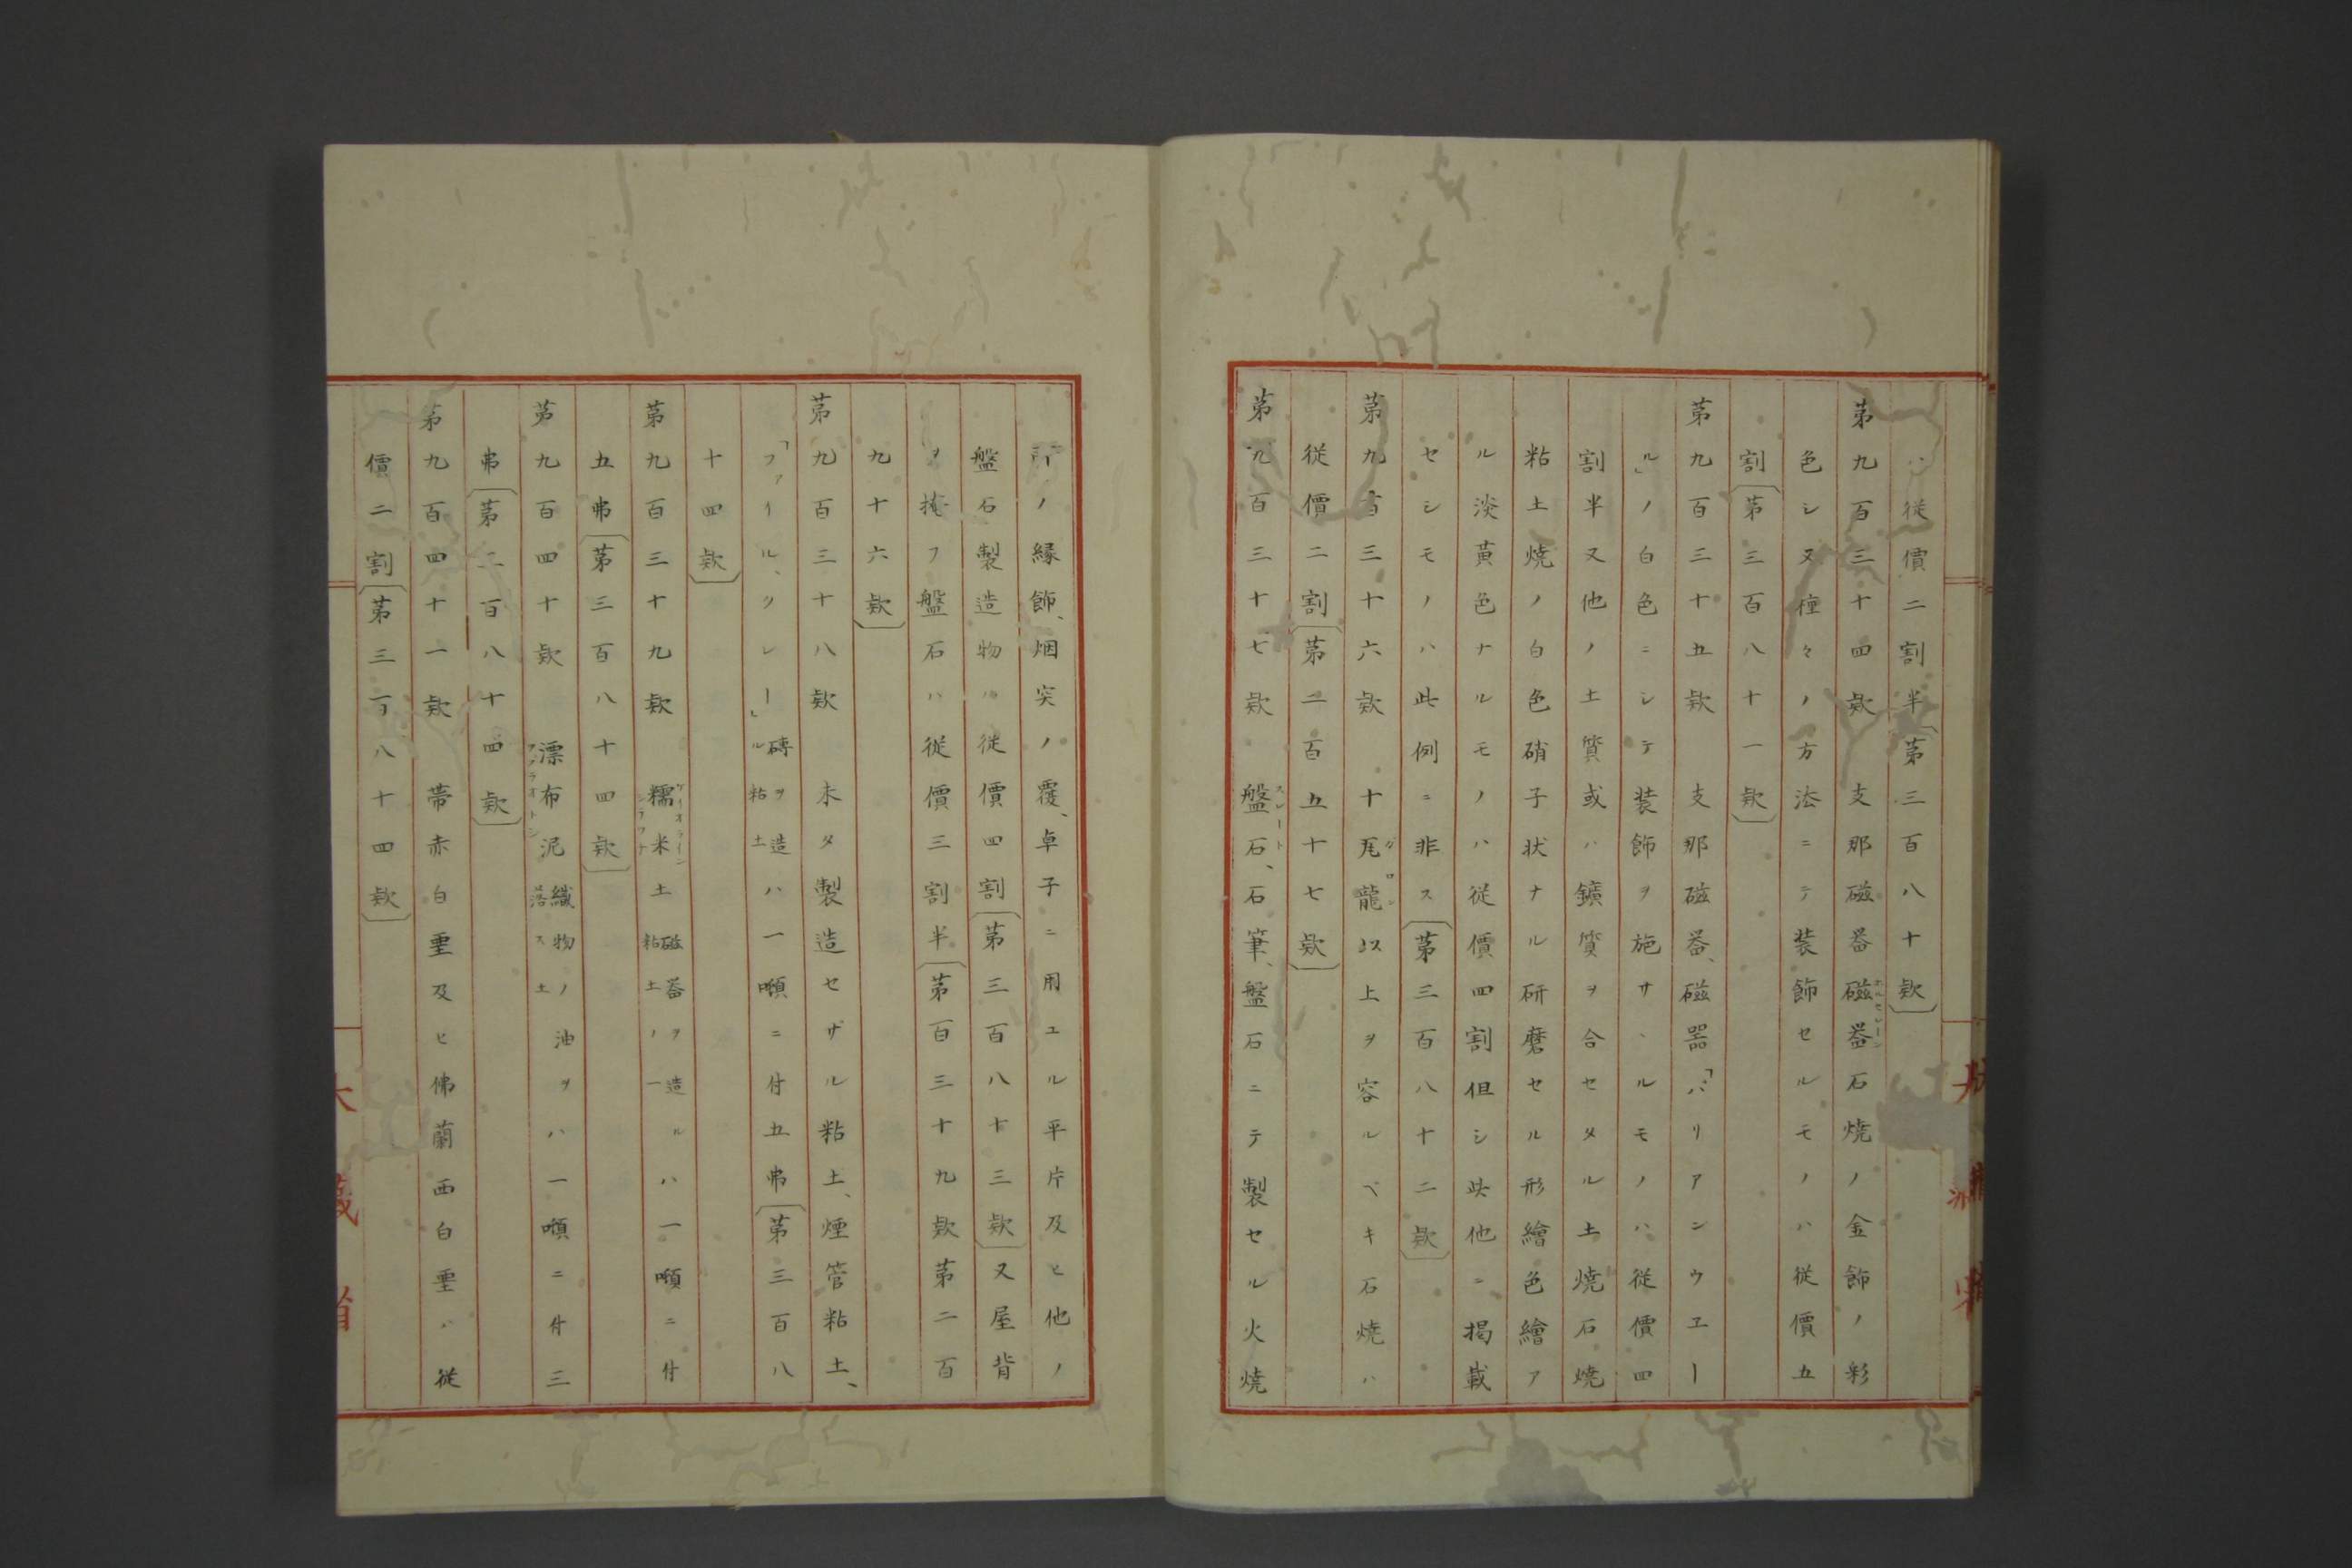 ハ従價二割半〔第三百八十款〕
第九百三十四款　支那磁器磁器石焼ノ金飾ノ彩
ポルセレーン
色シ又種々ノ方法ニテ装飾セルモノハ従價五
割〔第三百八十一款〕
第九百三十五款　支那磁器、磁器「パリアンウエー
ル」ノ白色ニシテ装飾ヲ施サヽルモノハ従價四
割半又他ノ土質或ハ鑛質ヲ合セタル土焼石焼
粘土焼ノ白色硝子状ナル研磨セル形繪色繪ア
ル淡黄色ナルモノハ従價四割但シ此他ニ掲載
セシモノハ此例ニ非ス〔第三百八十二款〕
第九百三十六款　十瓦龍以上ヲ容ルベキ石焼ハ
ガロン
従價二割〔第二百五十七款〕
第九百三十七款　盤石、石筆、盤石ニテ製セル火焼
スレート
所ノ縁飾、烟突ノ覆、卓子ニ用ユル平片及ヒ他ノ
盤石製造物ハ従價四割〔第三百八十三款〕又屋背
ヲ掩フ盤石ハ従價三割半〔第百三十九款第二百
九十六款〕
第九百三十八款　未タ製造セザル粘土、煙管粘土、
「ファイルヽクレー」磚ヲ造ル粘土ハ一噸ニ付五弗〔第三百八
十四款〕
第九百三十九款　糯米土磁器ヲ造ル粘土ノ一ハ一噸ニ付
五弗〔第三百八十四款〕
第九百四十款　漂布泥織物ノ油ヲ落ス土ハ一噸ニ付三
弗〔第二百八十四款〕
第九百四十一款　帯赤白堊及ヒ佛蘭西白堊ハ従
價二割〔第三百八十四款〕
大藏省